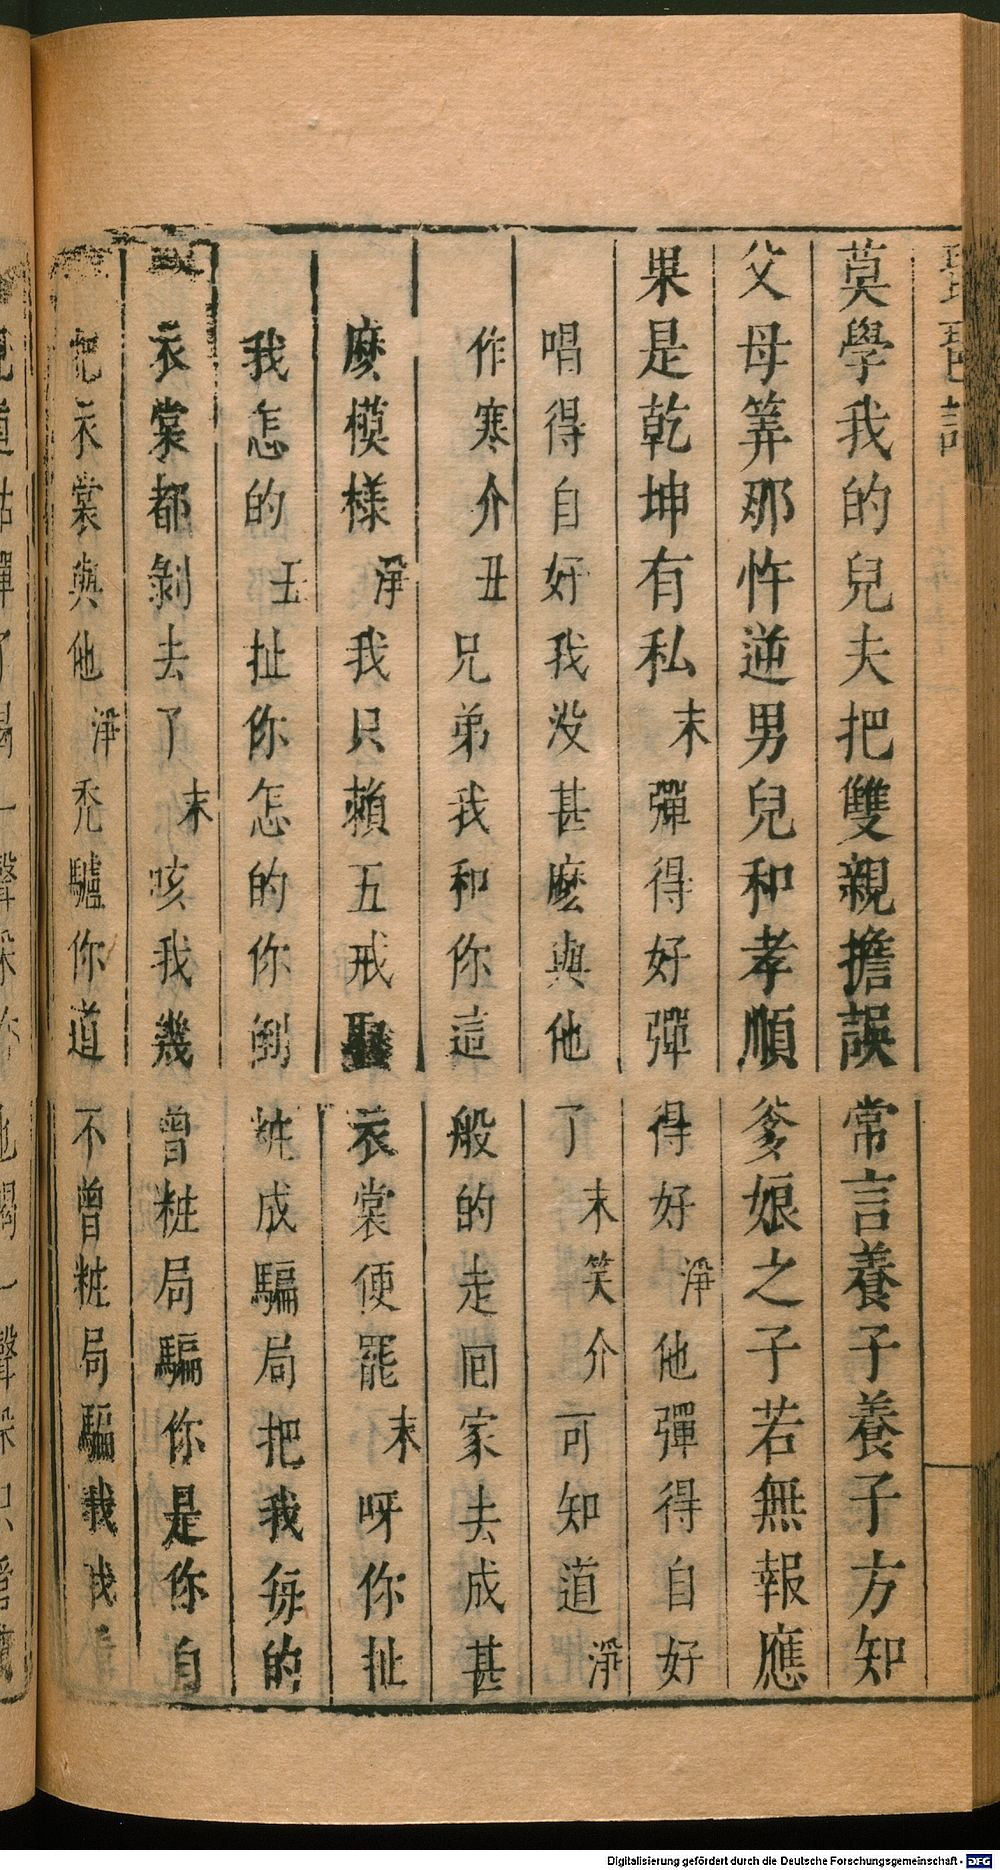 琵琶記
莫學我的兒夫把雙親擔誤常言養子養子方知
父母筭那忤逆男兒和孝順爹娘之子若無報應
果是乾坤有私末彈得好彈得好淨他彈得自好
唱得自好我没甚麽與他了末笑介可知道淨
作寒介丑兄弟我和你這般的走囘家去成甚
麽模樣淨我只賴五戒取衣裳便罷末呀你扯
我怎的丑扯你怎的你倒粧成騙局把我每的
衣裳都剝去了末咳我幾曾粧局騙你是你自
把衣裳與他淨禿驢你道不曾粧局騙我我
Digitalisierung gefördert durch die Deutsche Forschungsgemeinschaft - DFG